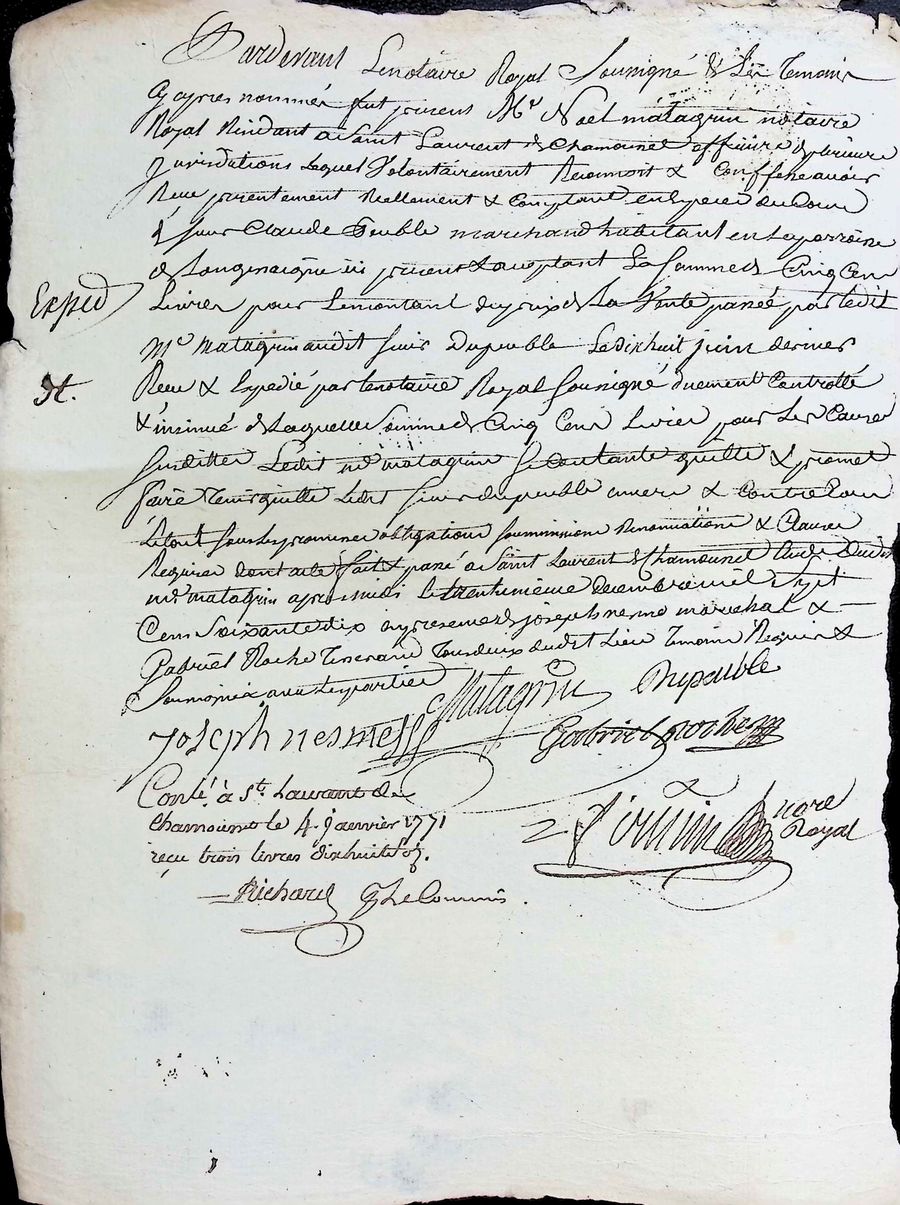 Pardevant Lenotaire Royal Sousigné & Les Temoins
Cy apres nommés fut present Mr Noël matagrin notaire
Royal Residant a Saint Laurent de Chamousset officier de plusieurs
Jurisdictions Lequel Volontairement Reconnoit & Confesse avoir
Reçu presentement Reellement & Comptant en Especes du Cours
de sieur Claude Peuble marchand habitant en La parroisse
de Longesaigne ici present & acceptant La Somme de Cinq Cens
Livres pour Le montant du prix de La Vente passé par Ledit
Me matagrin audit sieur Dupeuble Le dix huit juin dernier
Reçu & Expedié par Lenotaire Royal Sousigné duement Controllé
& insinué de Laquelle Somme de Cinq Cens Livres pour Les Causes
susdittes Ledit me matagrin se Contante quitte & promet
faire Tenir quitte Ledit sieur dupeuble envers & Contre Tous
Le tout sous Les promesses obligations soumissions Renonciations & Clauses
Requises dont acte fait & passé a Saint Laurent de Chamousset Etude dudit
me matagrin apres midi Le trentunieme Decembre mil Sept
Cens Soixante dix en presence de joseph nesme marechal &
Gabriel Roche Tisserand Tous deux dudit Lieu Temoins Requis &
Soussignés avec Les parties
Exped
St.
Matagrin Dupeuble
Joseph nesmess Gabriel roche
Conlé. à St. Laurant de
chamousset le 4. Janvier 1771
reçu trois livres dixhuit s.
Richard Le Commis.
nore
Royal